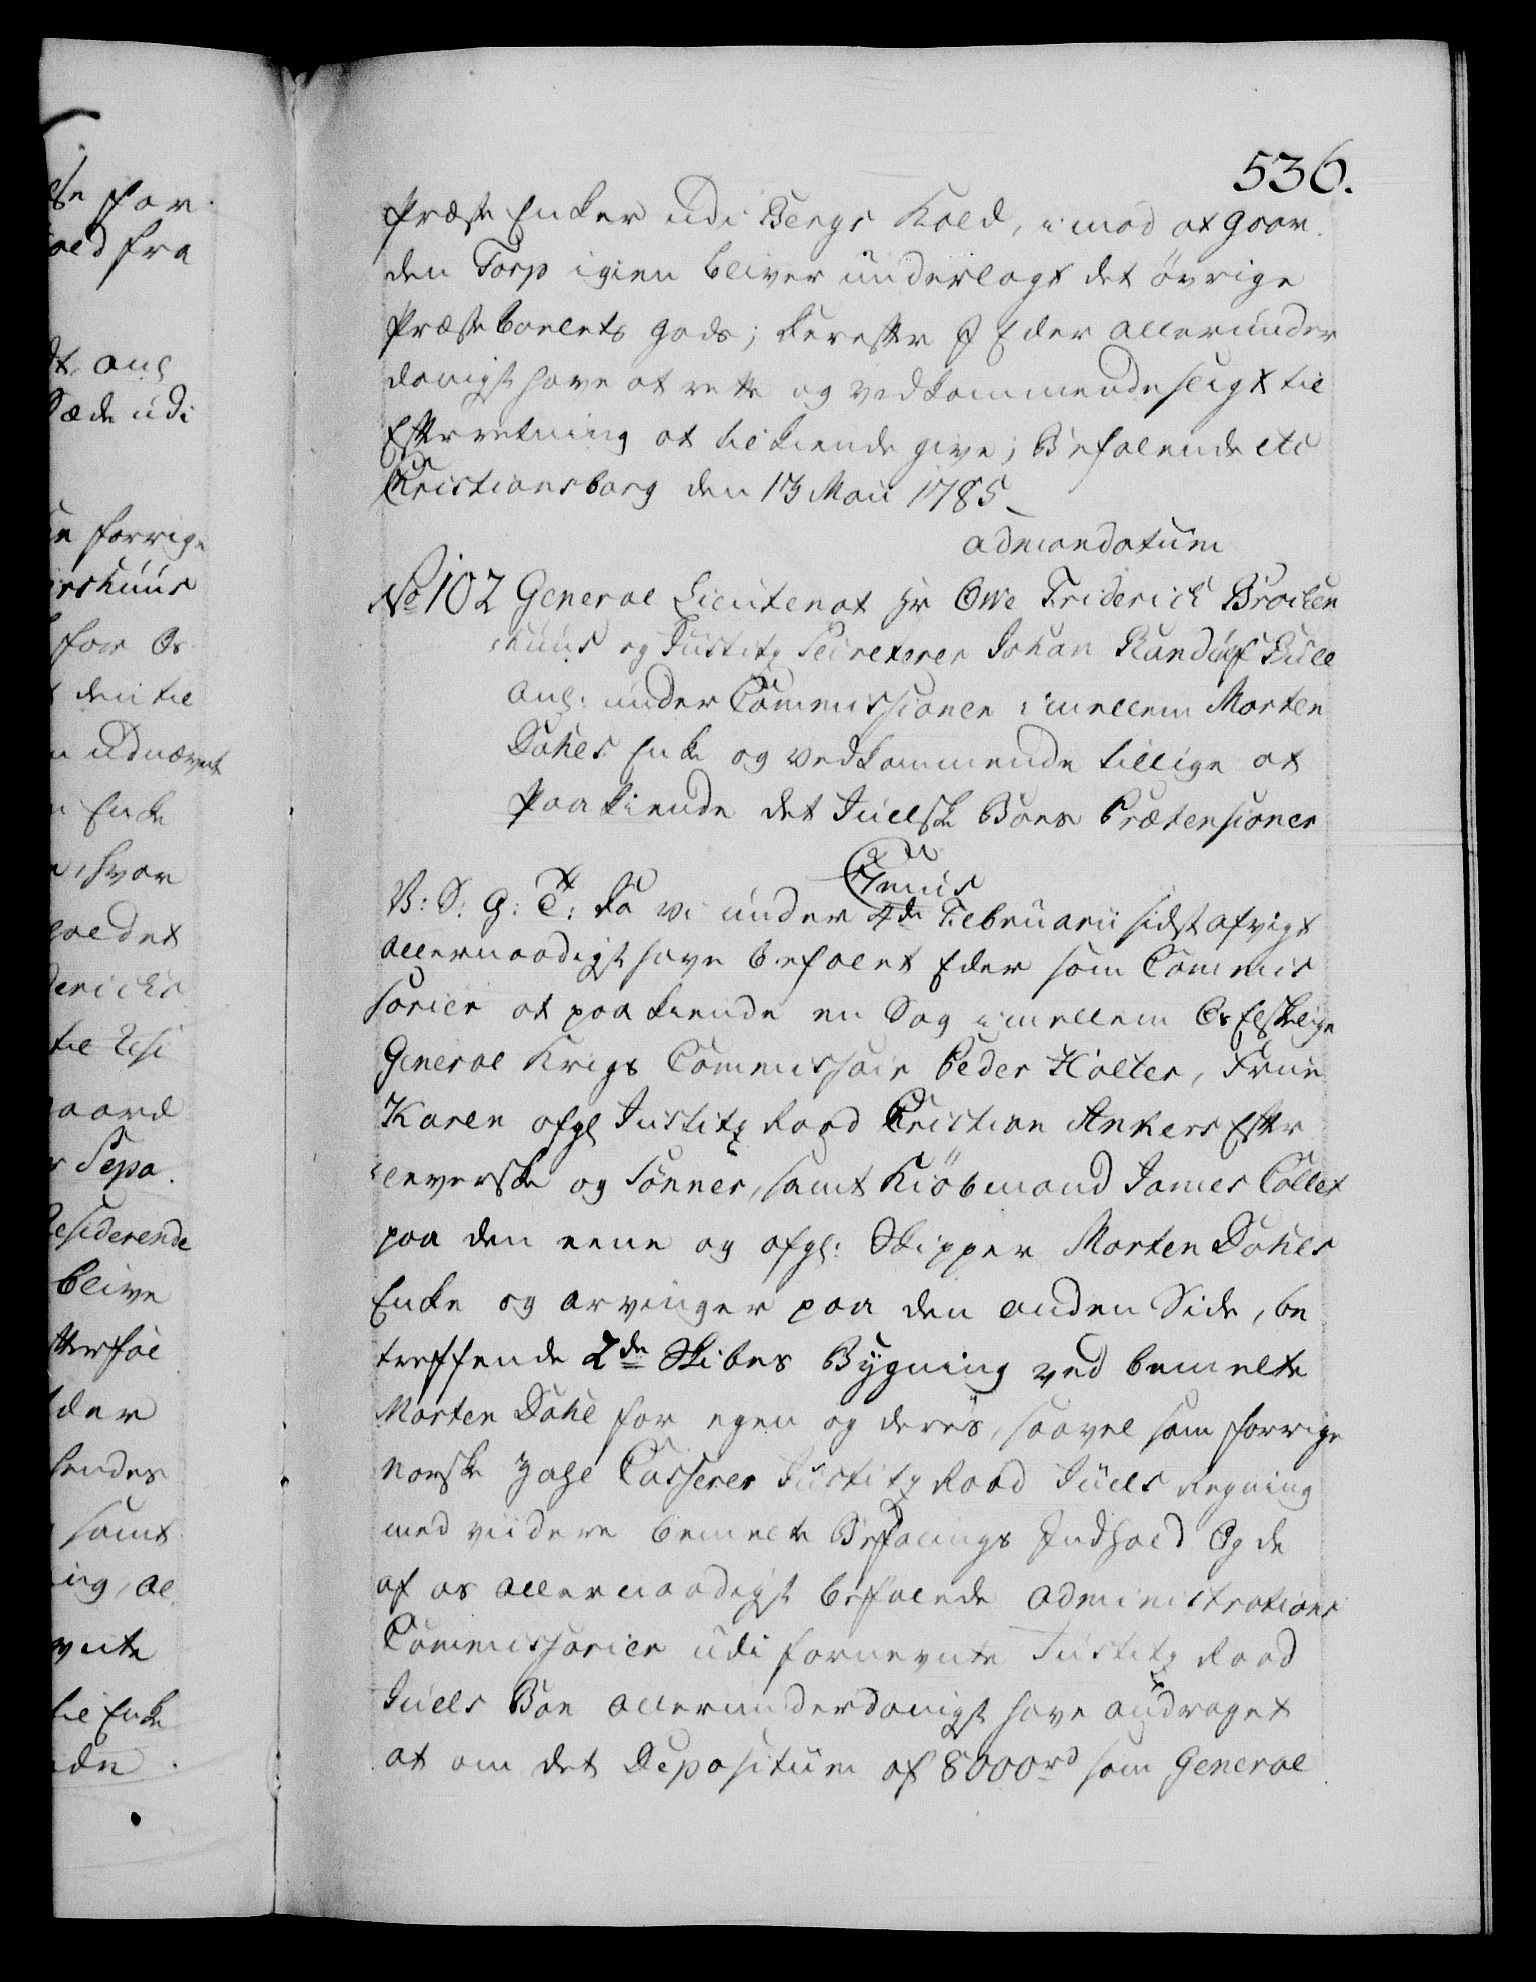 536.
Præste Enker udi Bergs Kald, imod at Gaar-
den Torp igien bliver underlagt det øvrige
Præsteboelets Gods; Derefter I Eder allerunder
danigst have at rette og vedkommende sligt til
Efterretning at tilkiende give; Befalende etc
Christiansborg den 13 Maii 1785
ad mandatum
No 102 General Lieutenat Hr Owe Friderich Brochen
huus og Justitz Secreterer Johan Randulf Bull
ang: under Commissionen imellem Morten
Dahls Enke og vedkommende tillige at
paakiende det Juelske Boes Prætensioner
V: S: G: T: Da vi under 4de Februarii sidst afvigt
allernaadigst have befalet Eder som Commis
sarier at paakiende en Sag imellem Os Elskelige
General Krigs Commissair Peder Holter, Frue
Karen afgl Justitz Raad Christian Ankers Efter
leverske og Sønner, samt Kiøbmand James Collet
paa den eene og afgl: Skipper Morten Dahls
Enke og Arvinger paa den anden Side, be
treffende 2de Skibes Bygning ved bemelte
Morten Dahl for egen og deres, saavel som forrige
Norske Zahl Casserer Justitz Raad Juels Regning
med viidere bemelte Befalings Indhold Og de
af os allernaadigst befalede Administrations
Commissarier udi fornevnte Justitz Raad
Juels Boe allerunderdanigst have andraget
at om det Depositum af 8000rd som General
ste for
old fra
ang
Sæde udi
forrige
huus
for Os
den til
udnævnt
Enke
hvor
til Resi
gaard
Sepa
Residerende
blive
der
hendes
samt
ing, al
til Enke